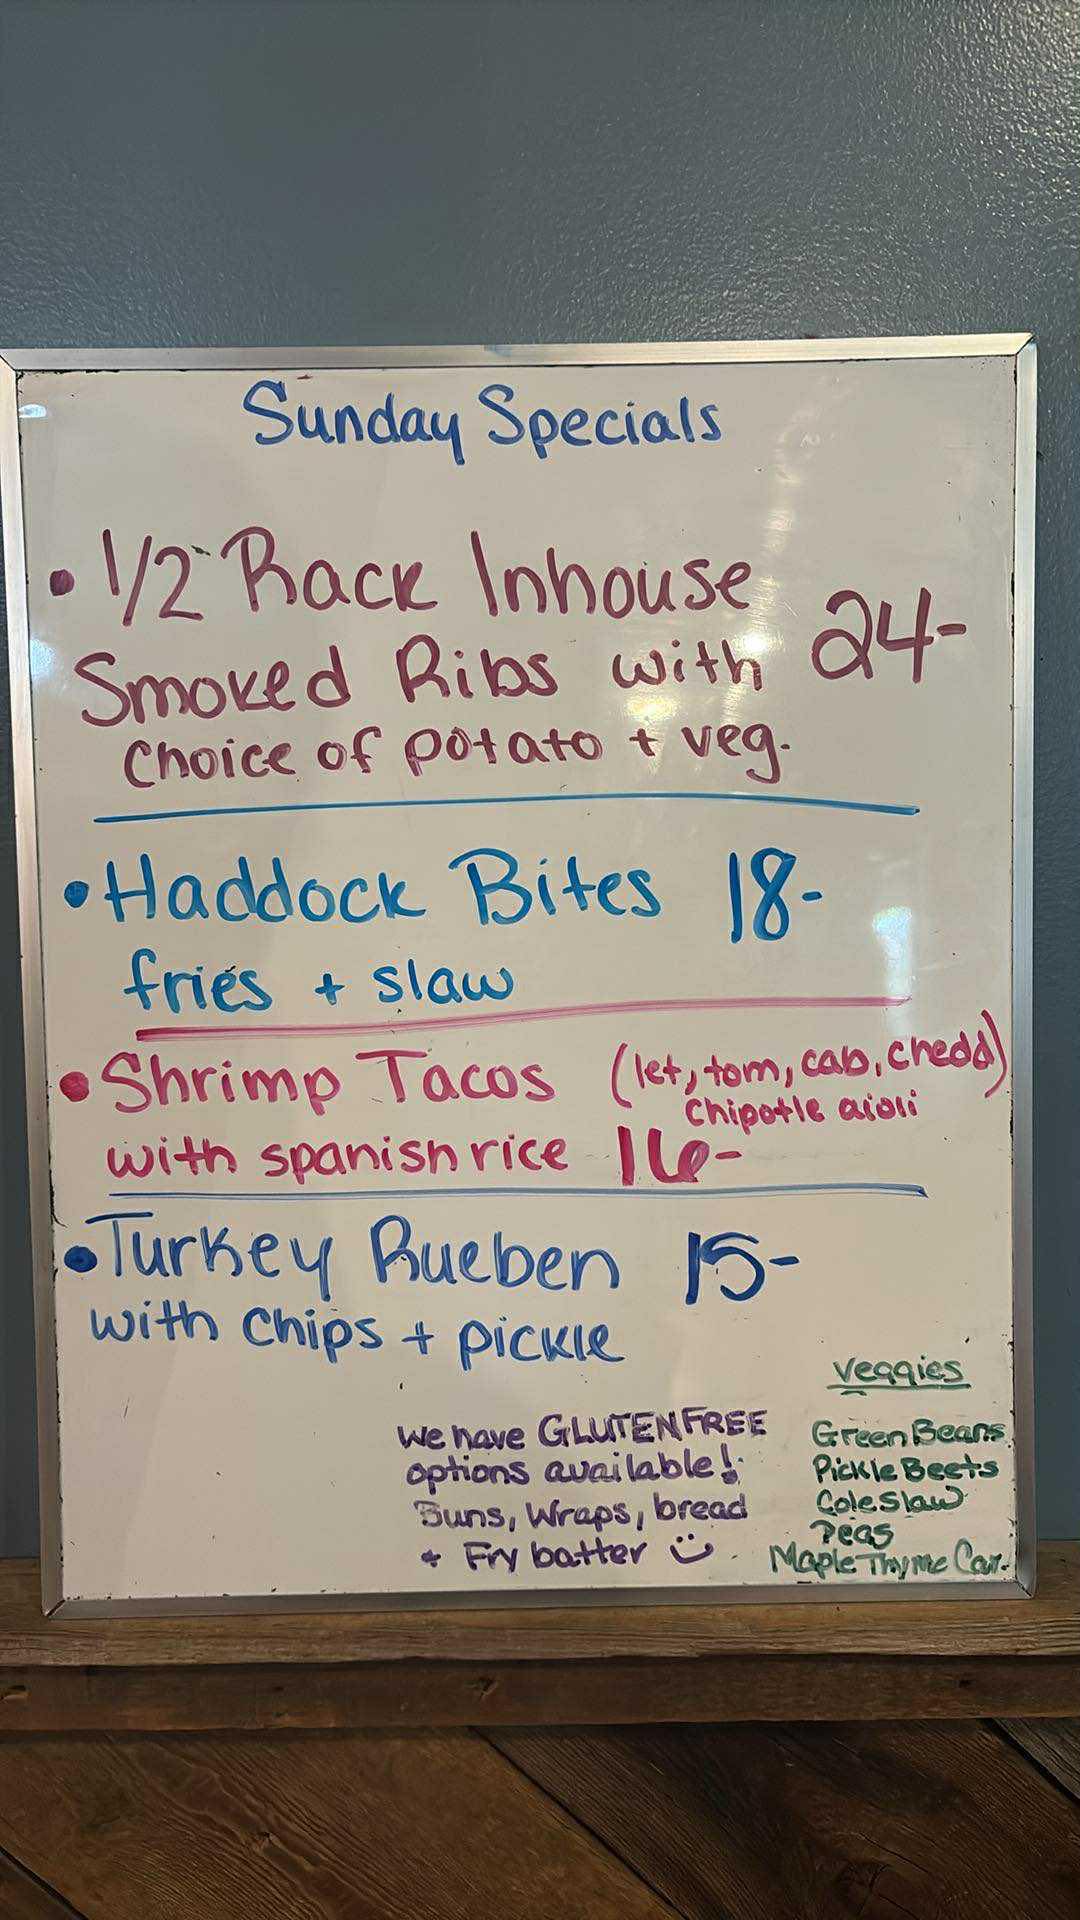 Sunday Specials
• 1/2 Rack Inhouse
Smoked Ribs with 24-
choice of potato + veg.
• Haddock Bites 18-
fries + slaw
• Shrimp Tacos (let, tom, cab, chedd)
chipotle aioli
with spanish rice 16-
• Turkey Rueben 15-
with chips + pickle
We have GLUTEN FREE
options available!
Buns, Wraps, bread
+ Fry batter
Veggies
Green Beans
Pickle Beets
Coleslaw
Peas
Maple Thyme Car.